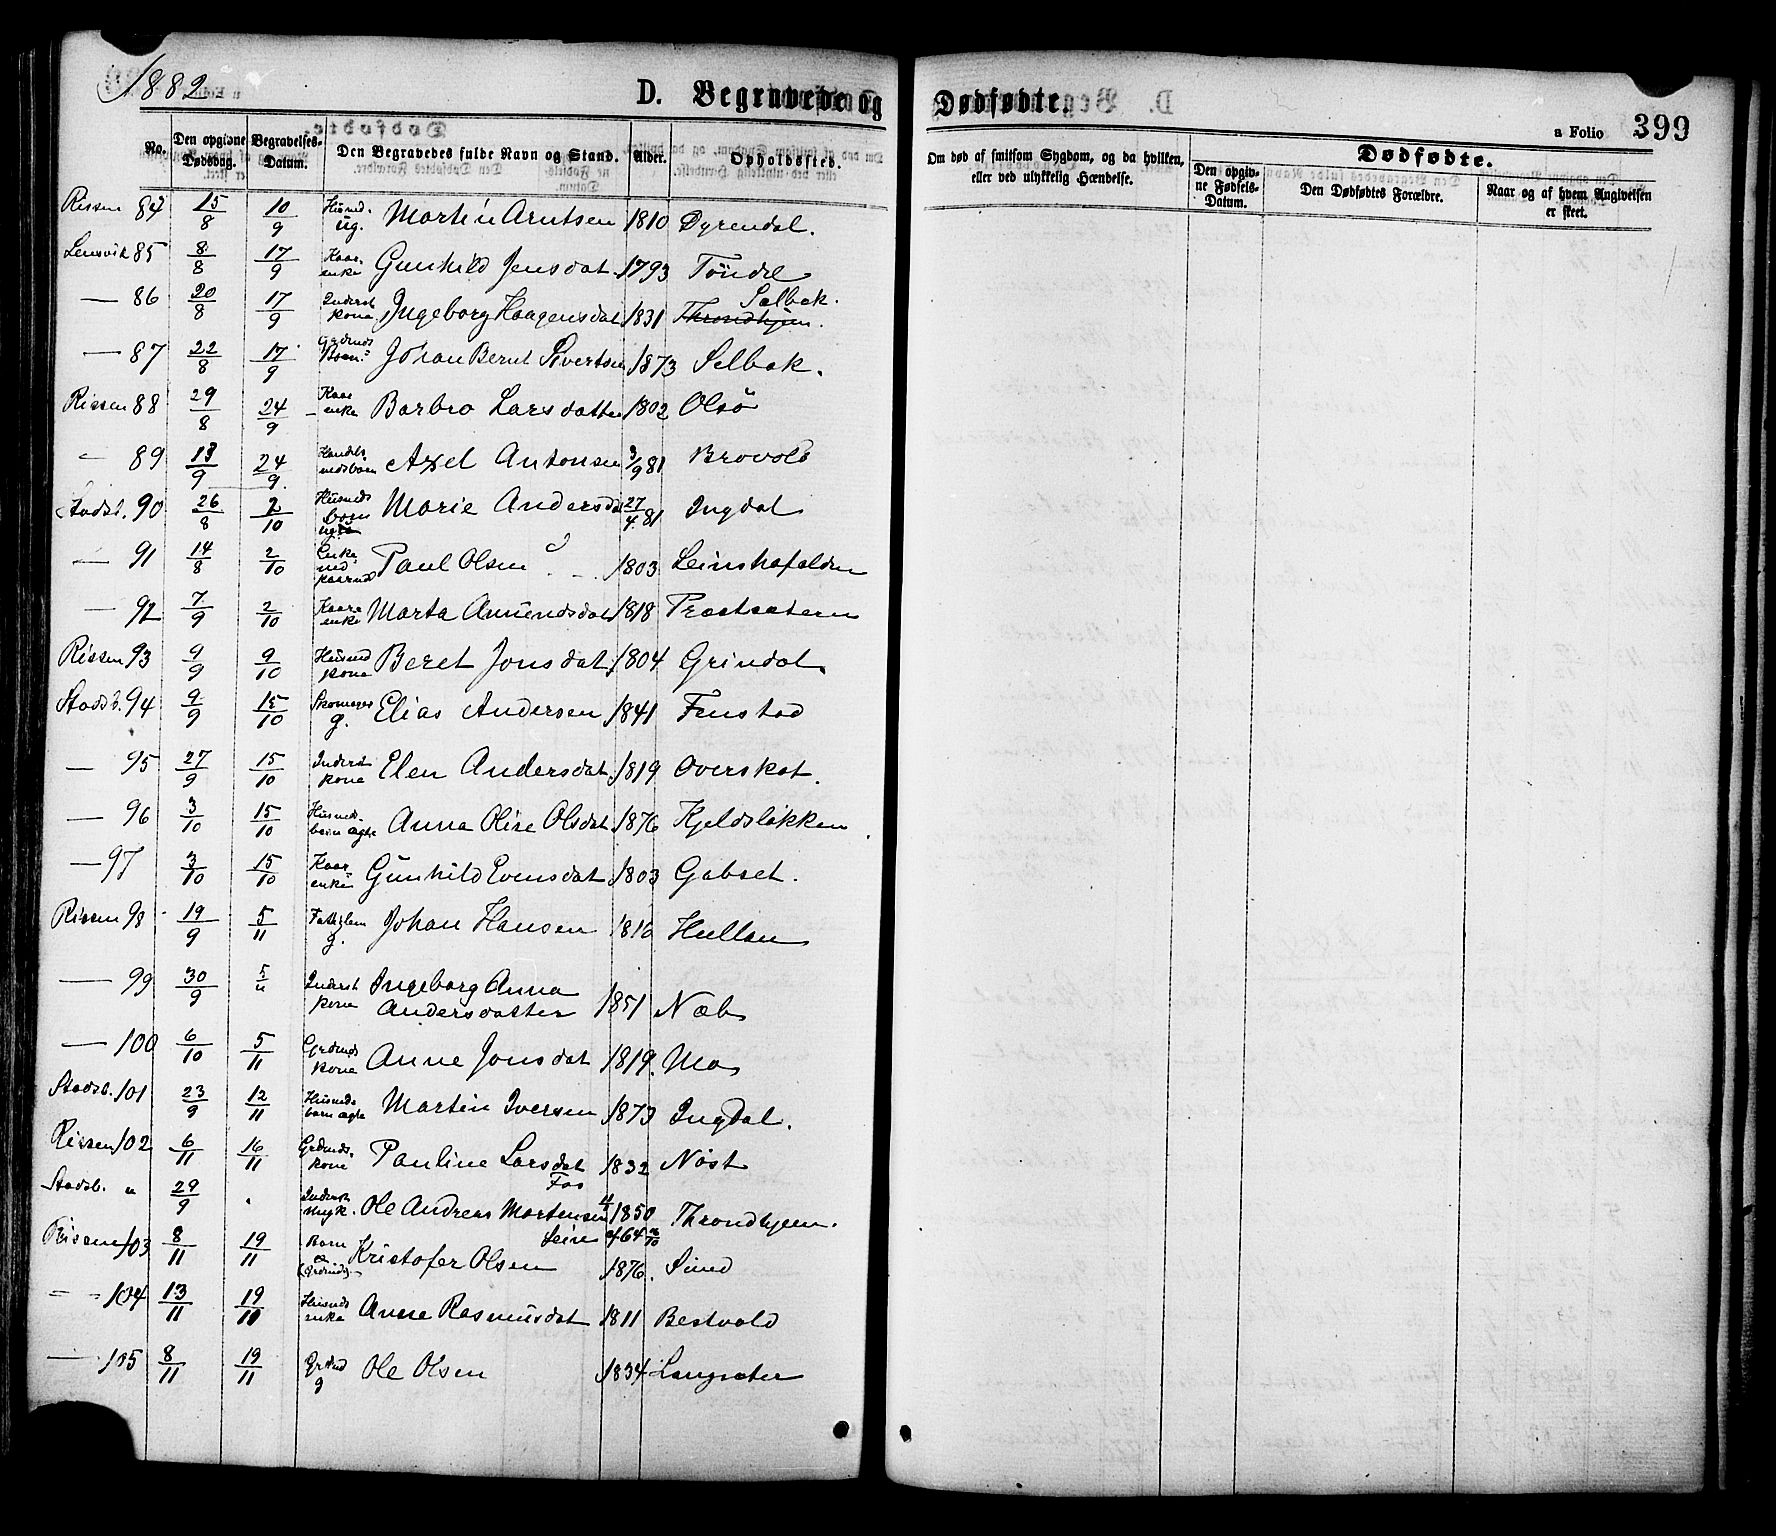 1882
D. Begravede og Dødfødte.
a Folio 399
No. Den opgivne Dødsdag. Begravelses-Datum. Den Begravedes fulde Navn og Stand. Alder. Opholdssted.
Om død af smitsom Sygdom, og da hvilken, eller ved ulykkelig Hændelse.
Dødfødte.
Den opgivne Fødsels-Datum. Den Dødfødtes Forældre. Naar og af hvem Angivelsen er skeet.
Rissen 84 15/8 10/9 Husmd. ug. Martin Arntsen 1810 Dyrendal.
Lensvik 85 8/8 17/9 Kaarenke Gunhild Jensdat. 1793 Töndel
— 86 20/8 17/9 Inderst kone Ingeborg Haagensdat 1831 Selbæk. Throndhjem.
— 87 22/8 17/9 Johan Bernt Sivertsen 1873 Selbæk.
Rissen 88 29/8 24/9 Kaarenke Barbro Larsdatter 1802 Olsö
— 89 13/9 24/9 Axel Antonsen 3/9 81 Brovold
Stadsb. 90 26/8 2/10 Husmds barn Marie Andersdat 27/4 81 Ingdal
— 91 14/8 2/10 Enkemd Paul Olsen 1803
— 92 7/9 2/10 Kaarenke Marta Amundsdat 1818
Rissen 93 9/9 9/10 Husmd kone Beret Jonsdat. 1804 Grindal
Stadsb. 94 9/9 15/10 Skomager g. Elias Andersen 1841 Fenstad
— 95 27/9 15/10 Inderst kone Elen Andersdat. 1819 Overskot.
— 96 3/10 15/10 Husmds. barn ægte Anna Oline Olsdat. 1876 Kjeldsløkken
— 97 3/10 15/10 Kaarenke Gunhild Evensdat 1803 Gabset.
Rissen 98 19/9 5/11 Fattiglem g. Johan Hansen 1816
— 99 30/9 5/11 Inderst kone Ingeborg Anna Andersdatter 1851 Næb
— 100 6/10 5/11 Grdmds kone Anne Jonsdat 1819. Mo
Stadsb. 101 23/9 12/11 Husmds barn ægte Martin Iversen 1873 Ingdal.
Rissen 102 6/11 16/11 Grdmds. kone Pauline Larsdat 1832 Nöst
Stadsb. " 29/9 Ole Andreas Mortensen Fos 1850 Throndhjem.
Rissen 103 8/11 19/11 Barn Kristofer Olsen 1876. Sund
" " 104 13/11 19/11 Husmds enke Anne Rasmusdat 1811 Bestvold
— 105 8/11 19/11 Grdmd g Ole Olsen 1834 Langsæter